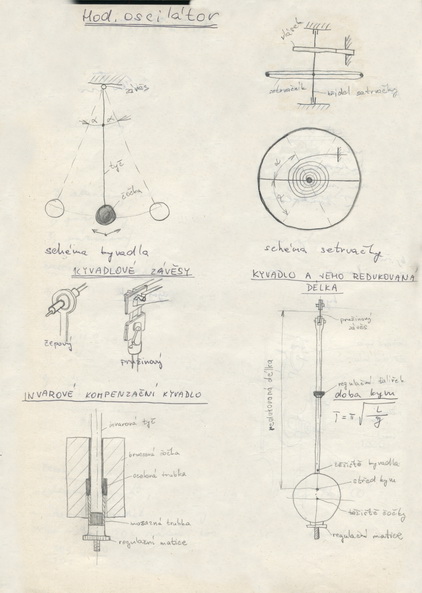 Hod. oscilátor
závěs
α
tyč
čočka
schéma kyvadla
setrvačník
hřídel setrvačky
schéma setrvačky
KYVADLOVÉ ZÁVĚSY
čepový
pružinový
KYVADLO A JEHO REDUKOVANÁ
DÉLKA
pružinový
závěs
redukovaná délka
regulační talířek
doba kyvu
T = π √ L / g
těžiště kyvadla
střed kyvu
těžiště čočky
regulační matice
INVAROVÉ KOMPENZAČNÍ KYVADLO
invarová tyč
bronzová čočka
ocelová trubka
mosazná trubka
regulační matice